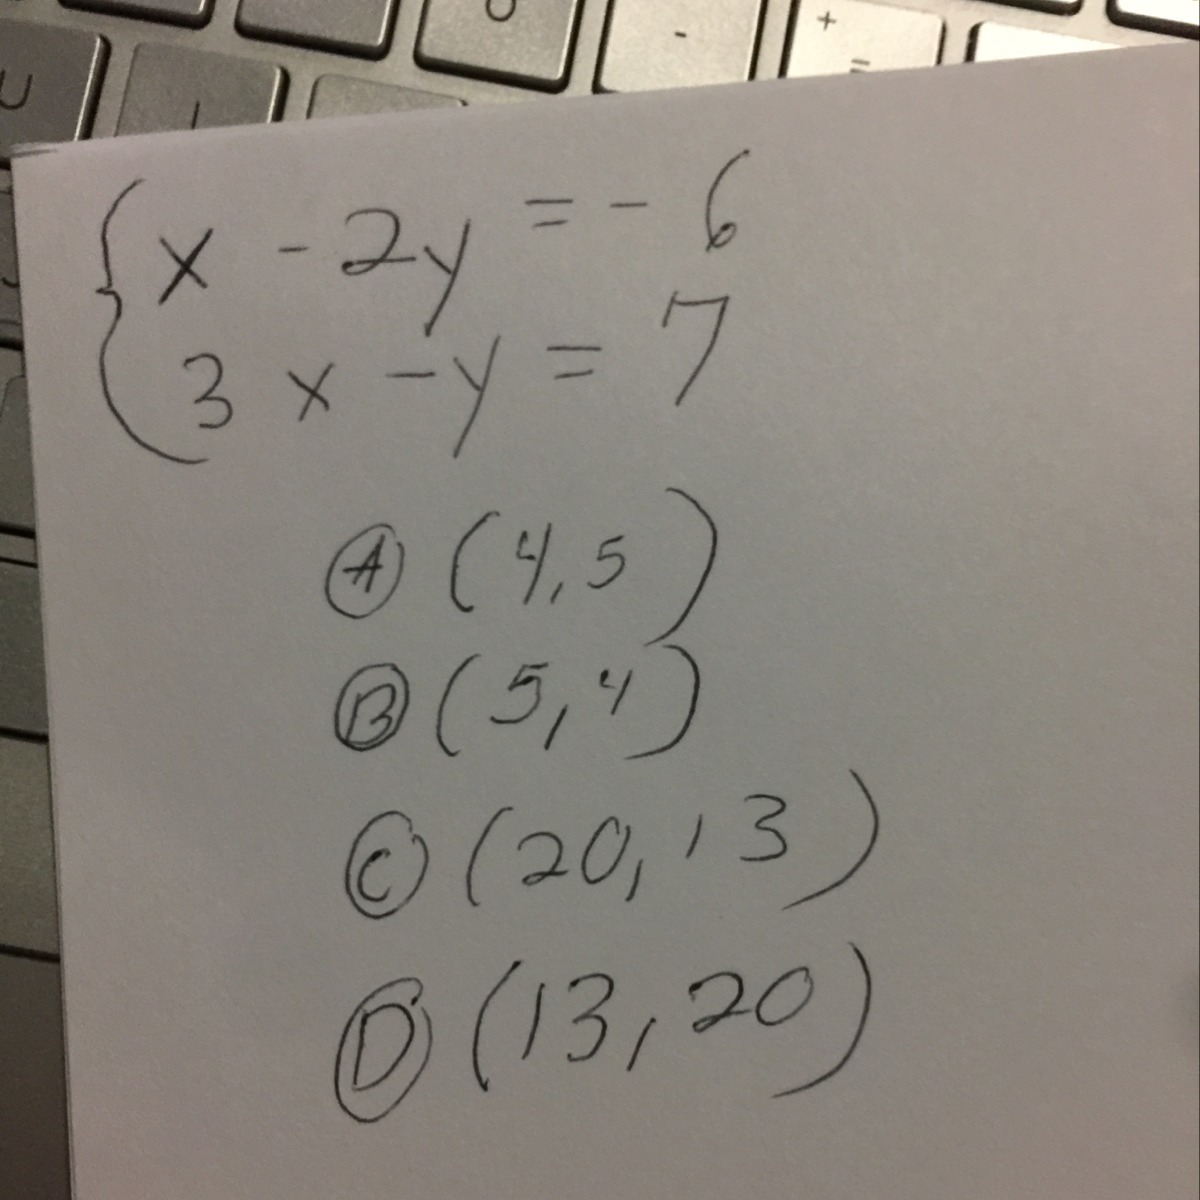 U I O - + =
{ x - 2y = - 6
3x - y = 7
Ⓐ (4,5)
Ⓑ (5,4)
Ⓒ (20,13)
Ⓓ (13,20)